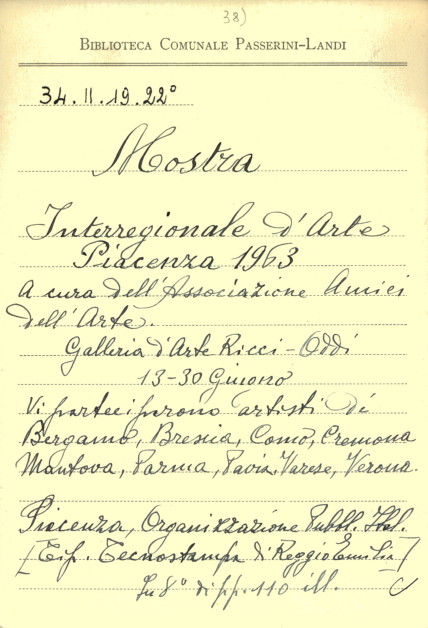 38)
BIBLIOTECA COMUNALE PASSERINI-LANDI
34.II.19.22°
Mostra
Interregionale d'Arte
Piacenza 1963
A cura dell'Associazione Amici
dell'Arte.
Galleria d'Arte Ricci-Oddi
13-30 Giugno
Vi parteciparono artisti di
Bergamo, Brescia, Como, Cremona
Mantova, Parma, Pavia, Varese, Verona.
Piacenza, Organizzazione Pubbl. Ital.
[Tip. Tecnostampa di Reggio Emilia]
In 8° di pp. 110 ill.